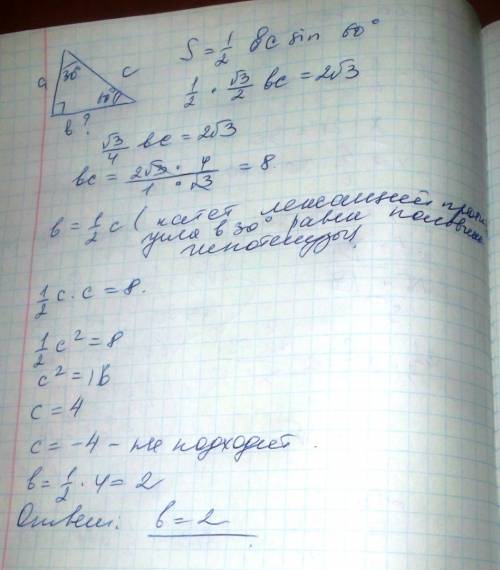 a 30° c 60°
b ?
S = 1/2 bc sin 60°
1/2 · √3/2 bc = 2√3
√3/4 bc = 2√3
bc = 2√3 · 4 / 1 · √3 = 8.
b = 1/2 c (катет лежащий против
угла в 30° равен половине
гипотенузы)
1/2 c · c = 8.
1/2 c² = 8
c² = 16
c = 4
c = -4 - не подходит.
b = 1/2 · 4 = 2
Ответ: b = 2